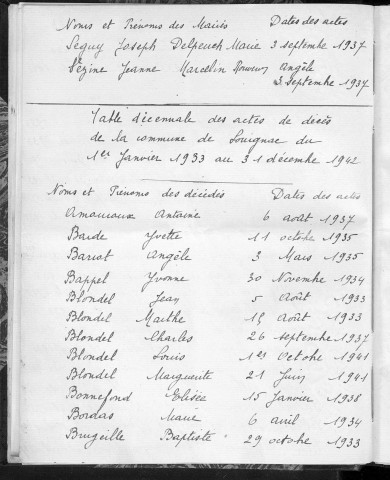 Noms et Prénoms des Mariés Dates des actes
Séguy Joseph Delpeuch Marie 3 septembre 1937
Vézine Jeanne Marcelin Angèle
3 septembre 1937
Table décennale des actes de décès
de la commune de Louignac du
1er Janvier 1933 au 31 décembre 1942
Noms et Prénoms des décédés Dates des actes
Amouroux Antoine 6 août 1937
Barde Yvette 11 octobre 1935
Bariot Angèle 3 Mars 1935
Bappel Yvonne 30 Novembre 1934
Blondel Jean 5 Août 1933
Blondel Marthe 15 Août 1933
Blondel Charles 26 septembre 1937
Blondel Louis 1er Octobre 1941
Blondel Marguerite 21 Juin 1941
Bonnefond Elisée 15 Janvier 1938
Bordas Marie 6 avril 1934
Brugeille Baptiste 29 octobre 1933